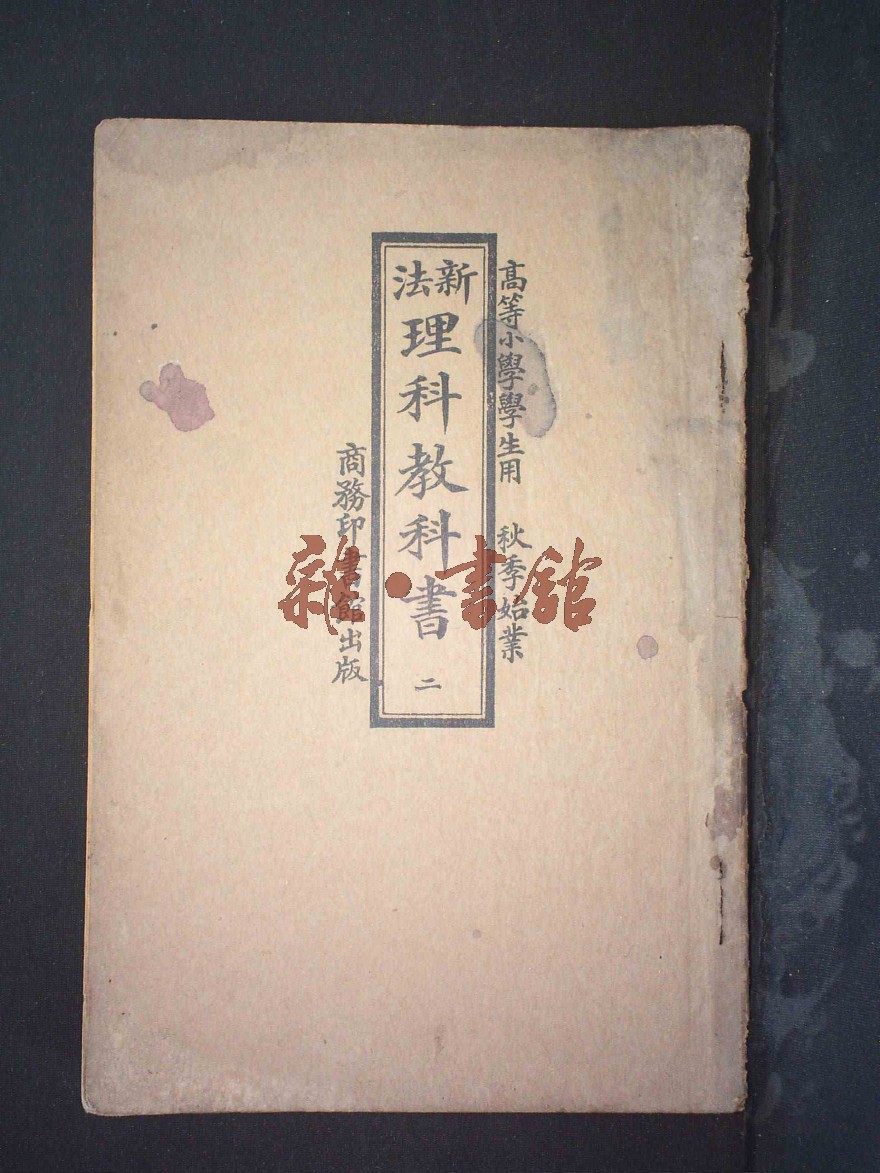 高等小學學生用 秋季始業
新法
理科教科書 二
商務印書館出版
雜·書館